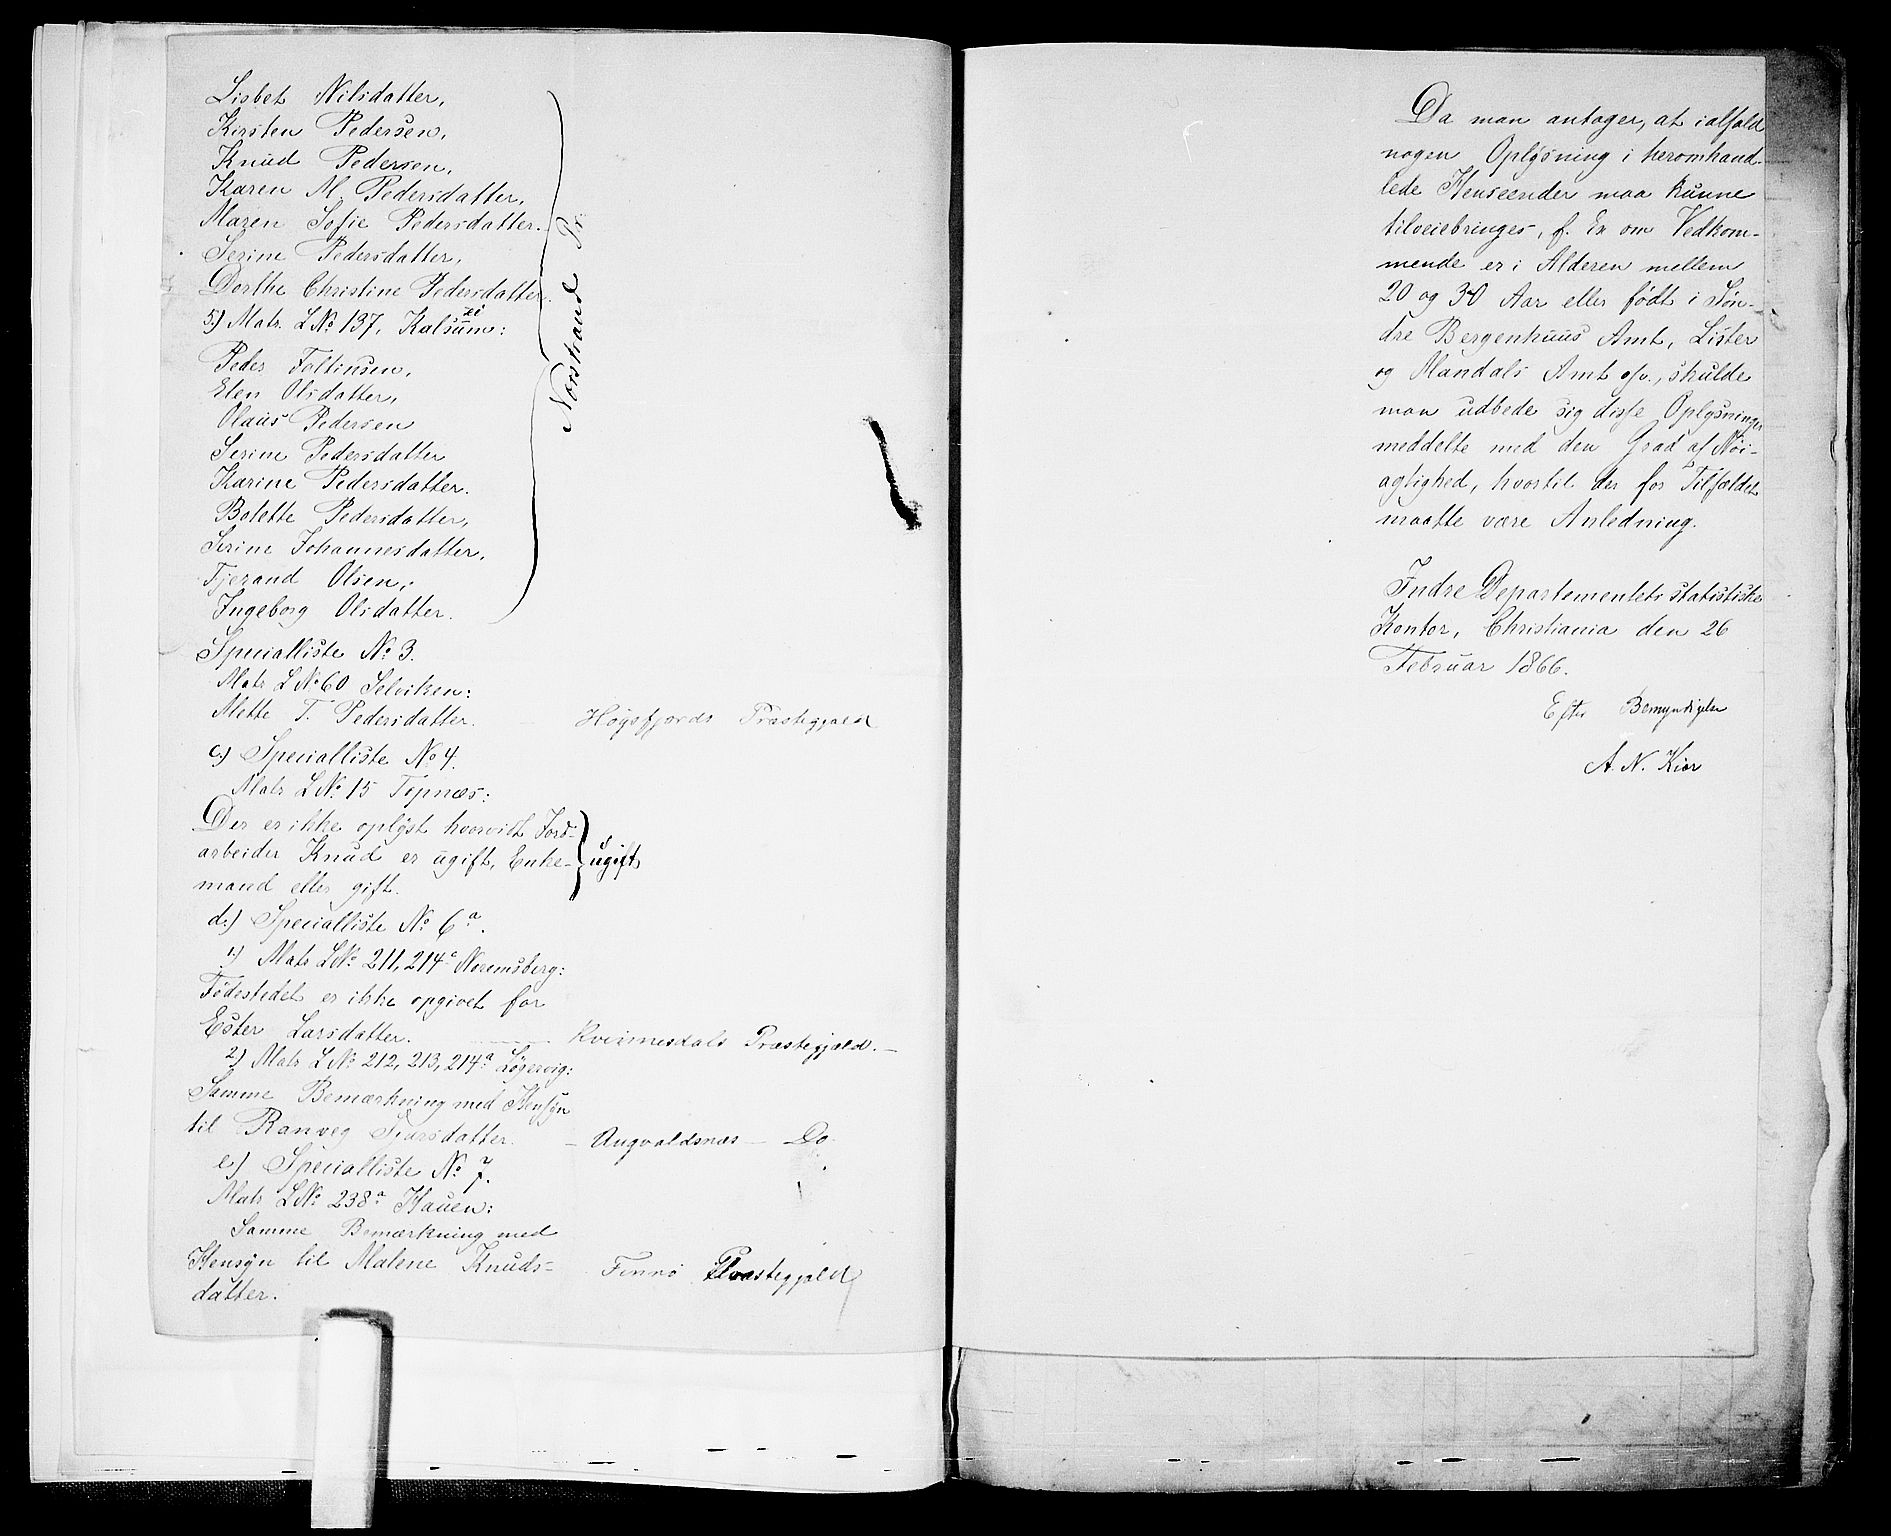 Lisbet Nilsdatter,
Kirsten Pedersen,
Knud Pedersen,
Karen M. Pedersdatter,
Maren Sofie Pedersdatter.
Serine Pedersdatter,
Dorthe Christine Pedersdatter.
Norstrand Pr.
5.) Matr. L№ 137, Kalsum:
Peder Foltinsen,
Elen Olsdatter,
Olaus Pedersen
Serine Pedersdatter
Karine Pedersdatter.
Bolette Pedersdatter,
Serine Johannesdatter,
Tjerand Olsen,
Ingeborg Olsdatter.
Specialliste № 3.
Matr L№ 60 Selviken:
Mette T. Pedersdatter. Høgsfjords Præstegjæld
c.) Specialliste № 4.
Matr L№ 15
Der er ikke oplyst hvorvidt Jord-
arbeider Knud er ugift, Enke- ugift
mand eller gift.
d.) Specialliste № 6a.
1.) Matr L№ 211, 214c Noremsberg:
Fødestedet er ikke opgivet for
Ester Larsdatter. Kvinnesdals Præstegjæld.
2) Matr L№ 212, 213, 214a Løgervig:
Samme Bemærkning med Hensyn
til Ranveg Ivarsdatter. – Augvaldsnæs – Do
e) Specialliste № 7.
Matr L№ 238a Hauen:
Samme Bemærkning med
Hensyn til Malene Knuds- Finnø Præstegjæld
datter.
Da man antager, at ialfald
nogen Oplysning i heromhand-
lede Henseender maa kunne
tilveiebringes, f. Ex om Vedkom-
mende er i Alderen mellem
20 og 30 Aar eller født i Søn-
dre Bergenhuus Amt, Lister
og Mandals Amt osv., skulde
man udbede sig disse Oplysninger
meddelte med den Grad af Nøi-
agtighed, hvortil der for Tilfældet
maatte være Anledning.
Indre Departementets statistiske
Kontor, Christiania den 26
Februar 1866.
Efter Bemyndigelse
A. N. Kiær